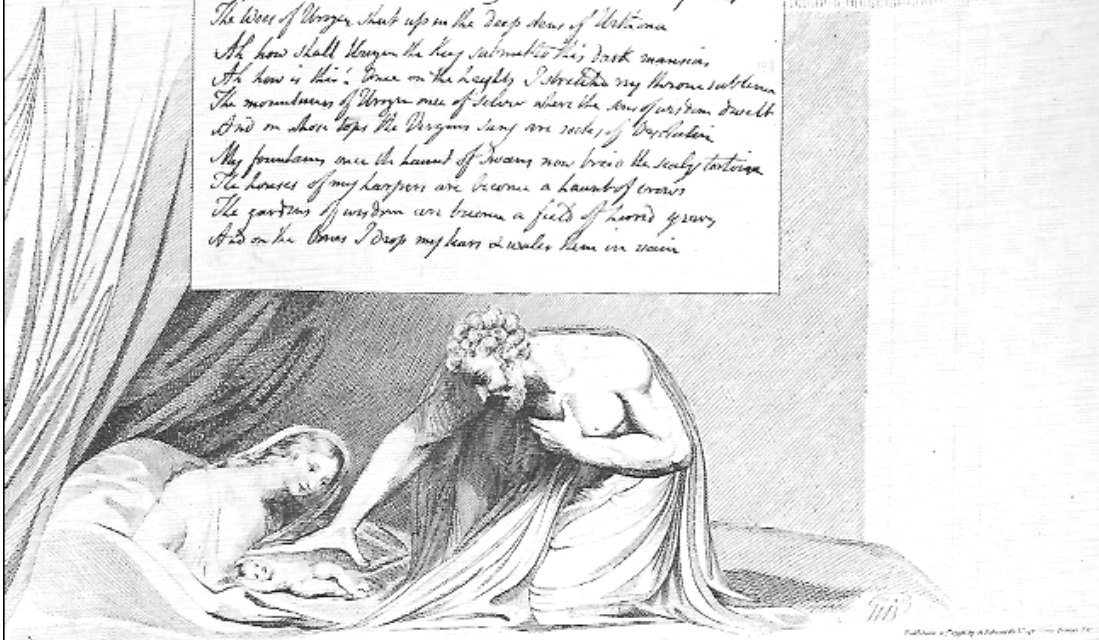 The Woes of Urizen shut up in the deep dens of Urthona
Ah how shall Urizen the King submit to this dark mansion
Ah how is this! Once on the heights I stretchd my throne sublime
The mountains of Urizen once of silver where the sons of wisdom dwelt
And on whose tops the Virgins sang are rocks of Desolation
My fountains once the haunt of Swans now breed the scaly tortoise
The houses of my harpers are become a haunt of crows
The gardens of wisdom are become a field of horrid graves
And on the bones I drop my tears & water them in vain